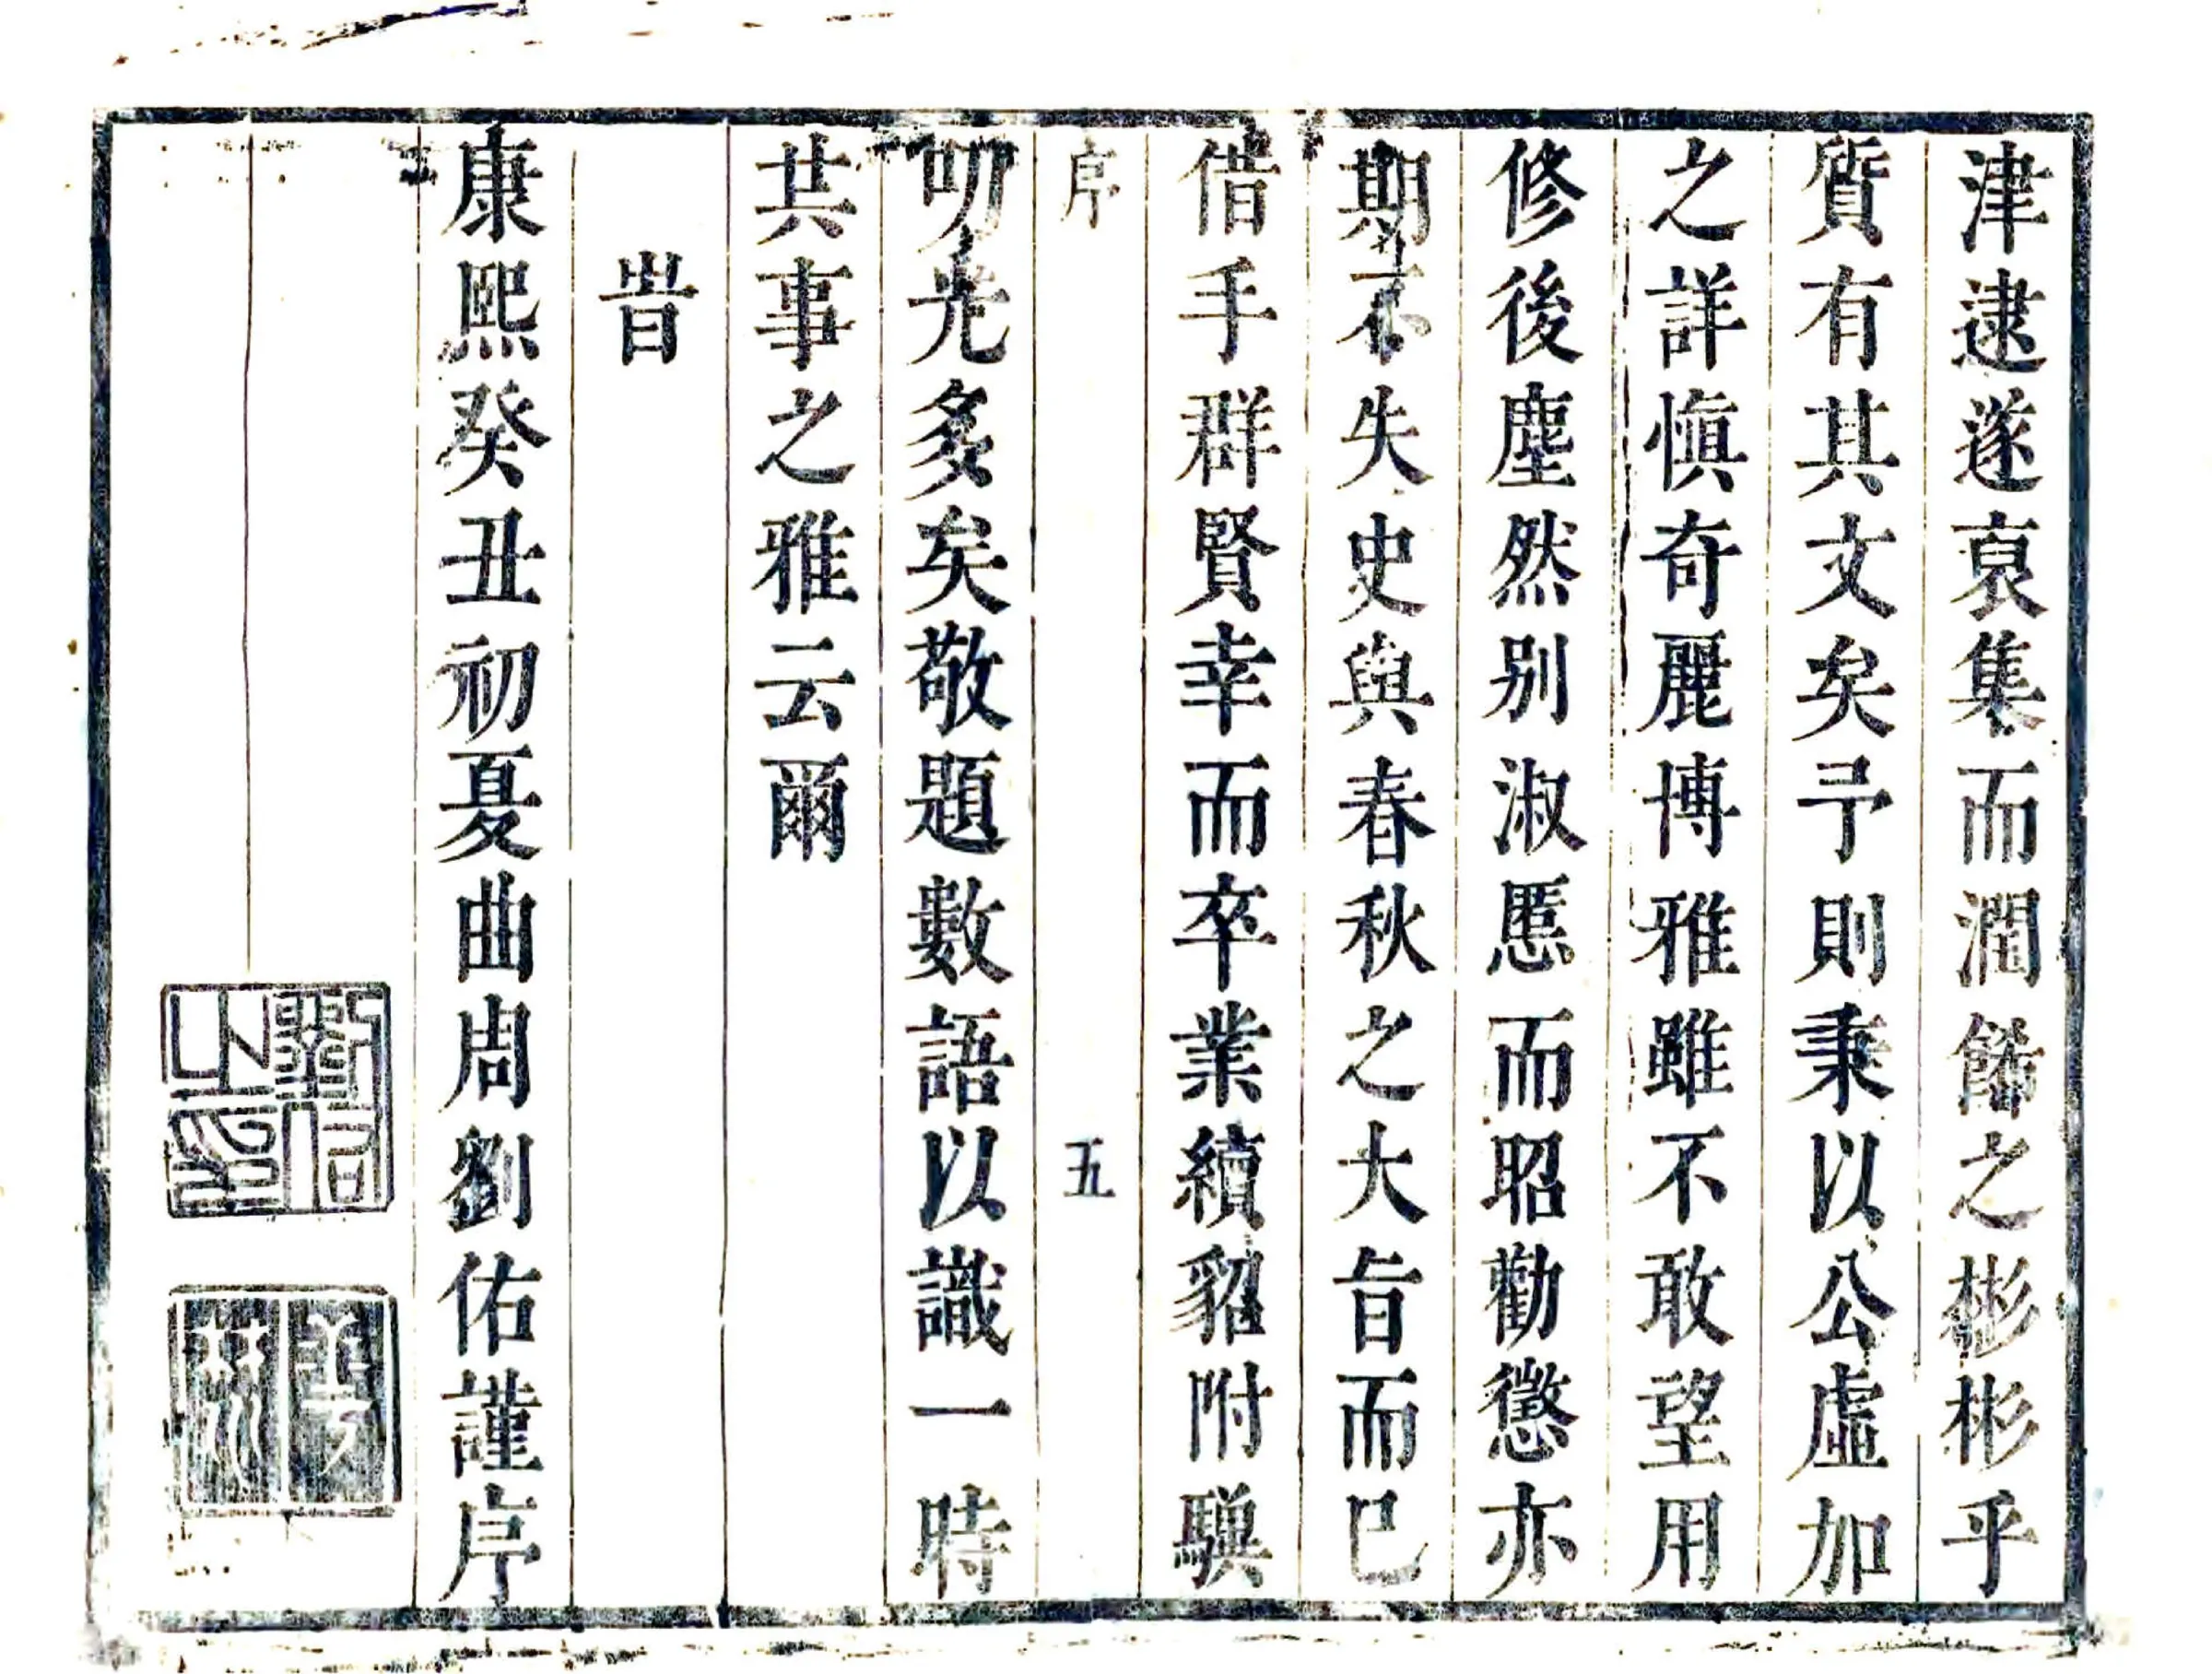 津逮遂裒集而潤餙之彬彬乎
質有其文矣予則秉以公虛加
之詳慎奇麗博雅雖不敢望用
修後塵然别淑慝而昭勸懲亦
期不失史與春秋之大旨而已
借手群賢幸而卒業續貂附驥
序
五
叨光多矣敬題數語以識一時
共事之雅云爾
旹
康熙癸丑初夏曲周劉佑謹序
劉佑之印